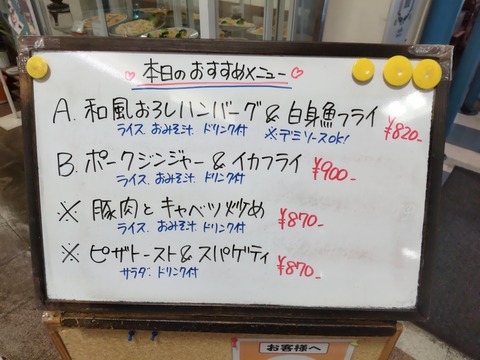 ♡本日のおすすめメニュー♡
A. 和風おろしハンバーグ & 白身魚フライ ¥820-
ライス、おみそ汁、ドリンク付 ※デミソースOK!
B. ポークジンジャー & イカフライ ¥900-
ライス、おみそ汁、ドリンク付
※ 豚肉とキャベツ炒め ¥870-
ライス、おみそ汁、ドリンク付
※ ピザトースト & スパゲティ ¥870-
サラダ、ドリンク付
お客様へ